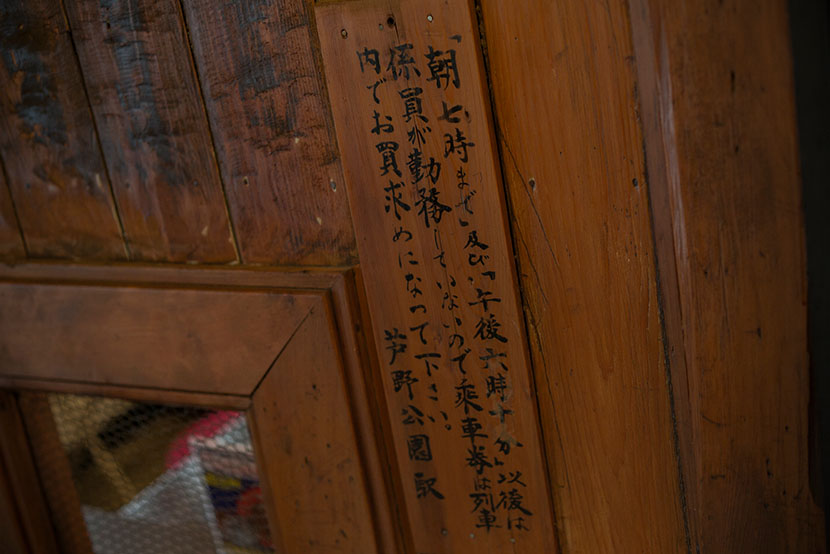 「朝七時まで」及び「午後六時十分」以後は
係員が勤務していないので乗車券は列車
内でお買求めになって下さい。
芦野公園駅